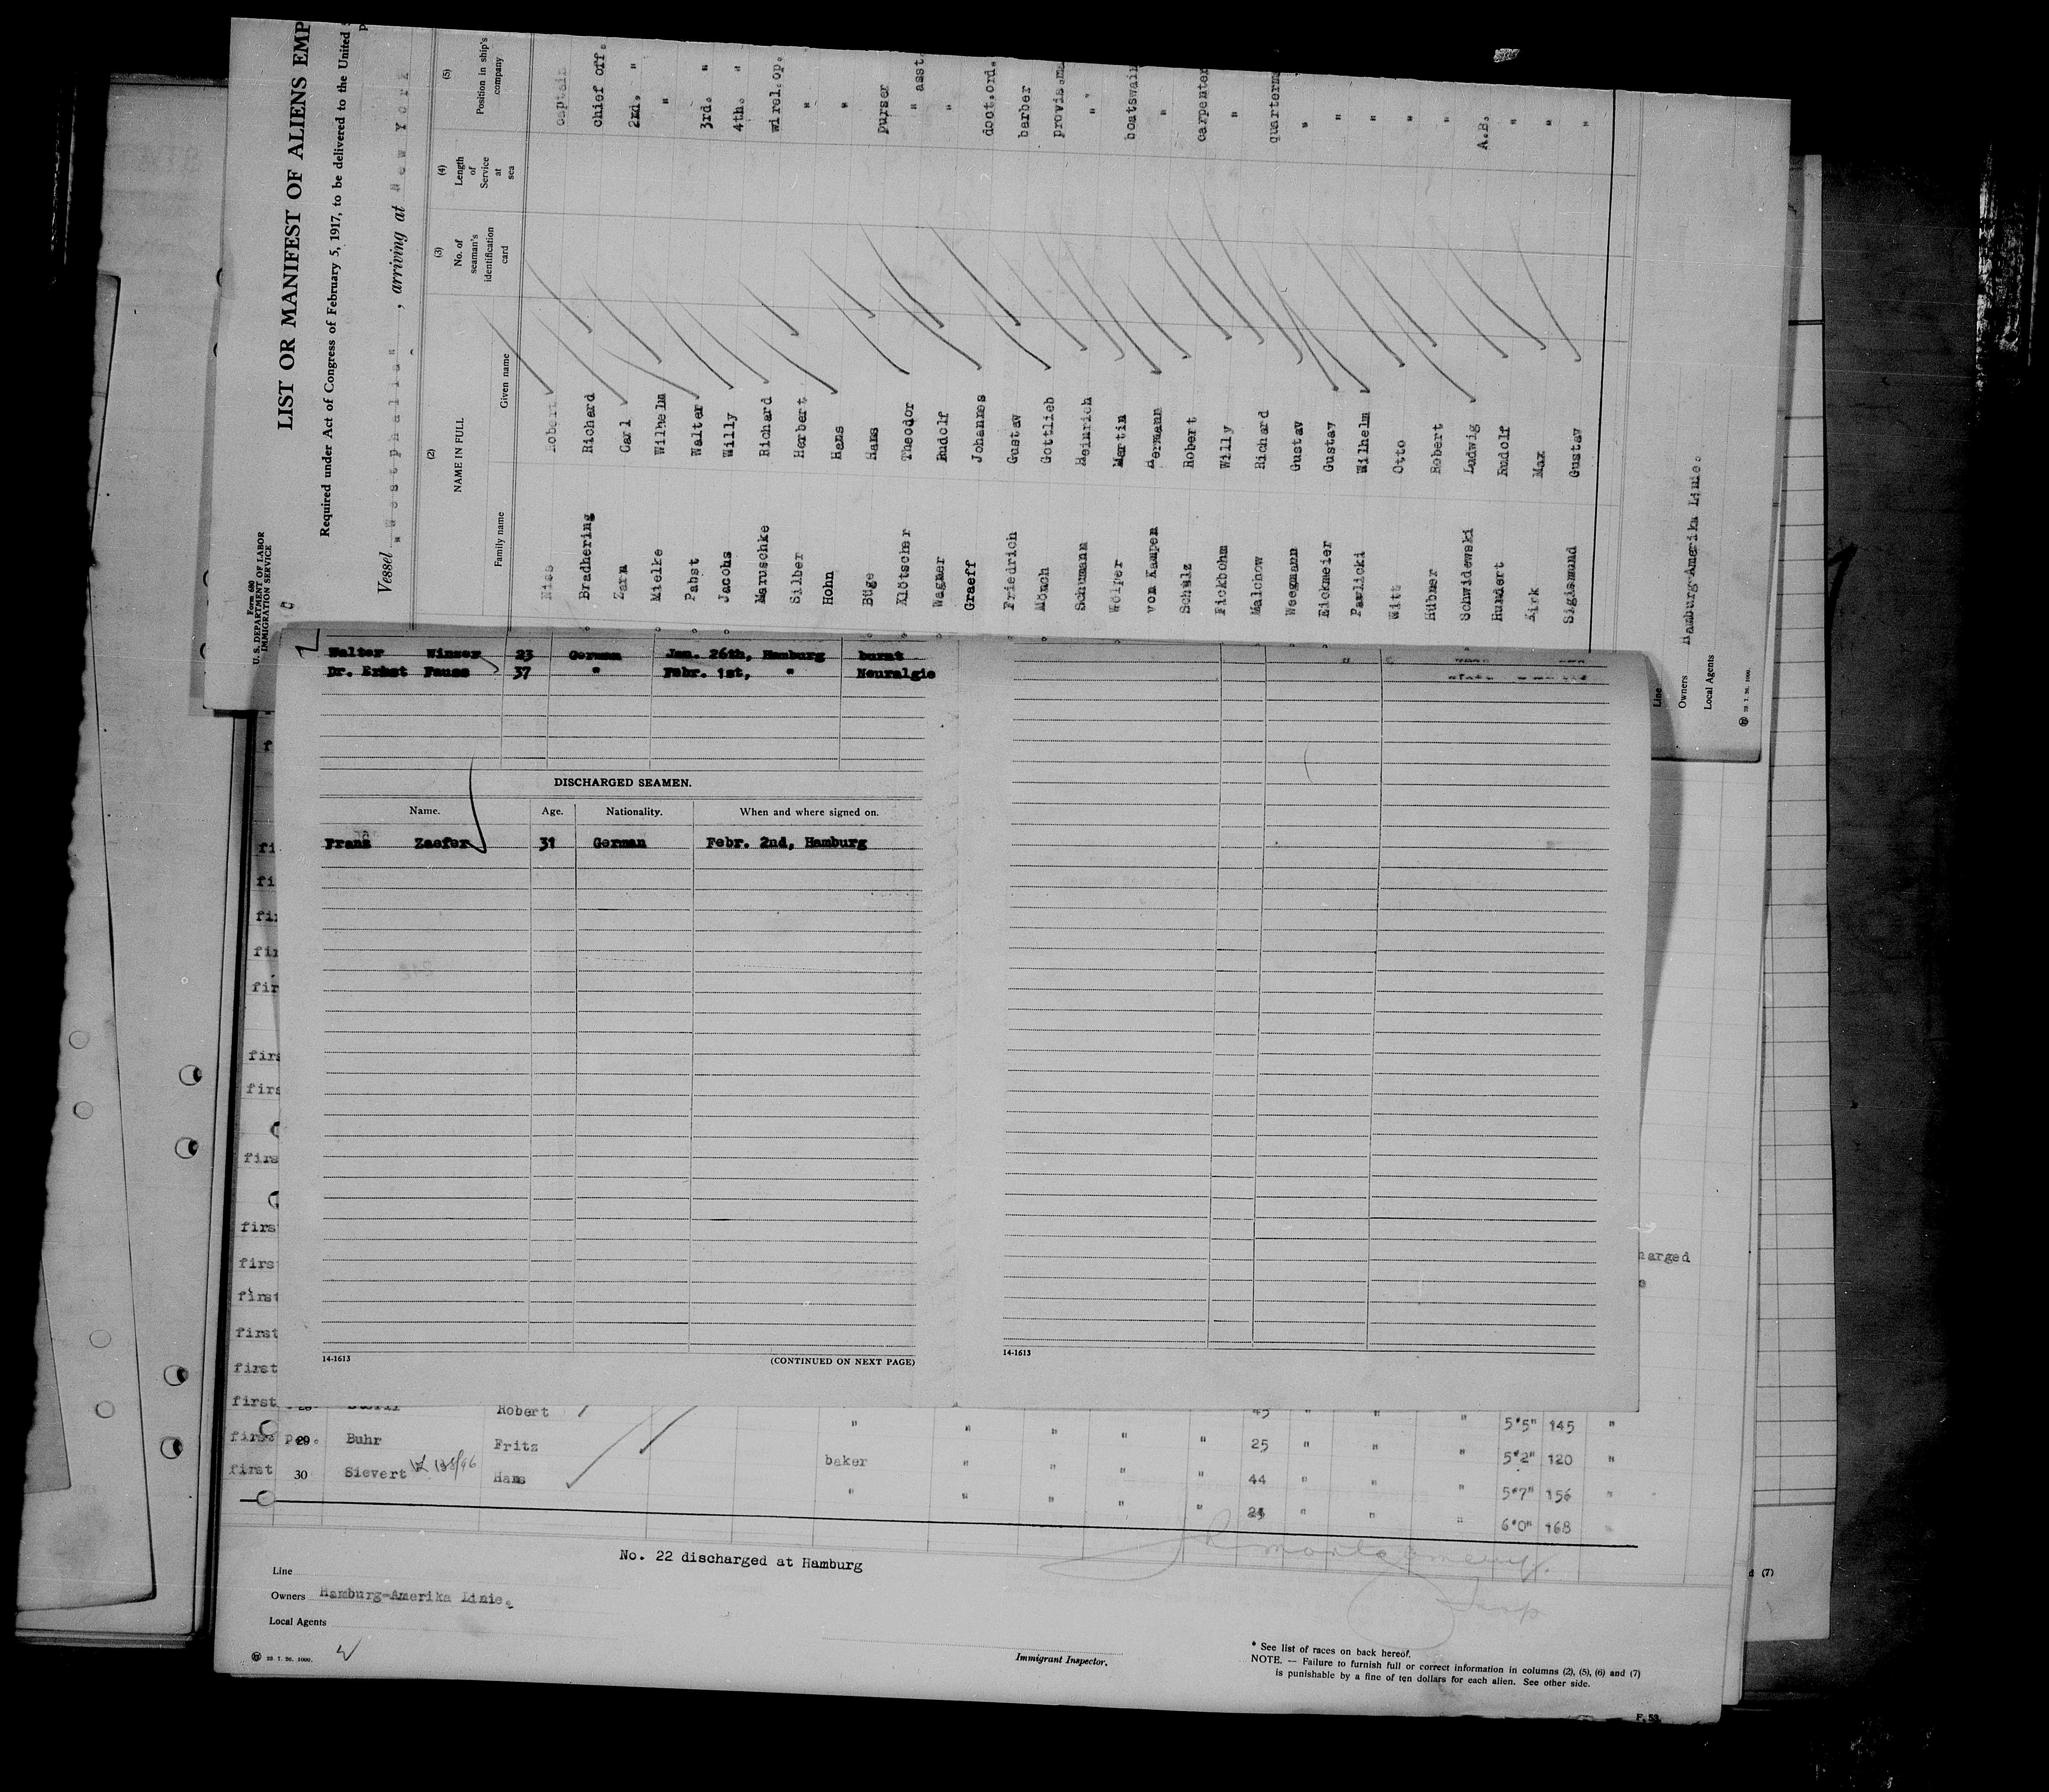 Form 680
U. S. DEPARTMENT OF LABOR
IMMIGRATION SERVICE
LIST OR MANIFEST OF ALIENS EMP
Required under Act of Congress of February 5, 1917, to be delivered to the United
Vessel "Westphalia", arriving at New York
(2) (3) (4) (5)
NAME IN FULL No. of seaman's identification card Length of Service at sea Position in ship's company
Family name Given name
Niss Robert captain
Bradhering Richard chief off.
Zarn Carl 2nd. "
Mielke Wilhelm "
Pabst Walter 3rd. "
Jacobs Willy 4th. "
Maruschke Richard wirel.op.
Silber Herbert "
Hohn Hans "
Büge Hans purser
Klötscher Theodor " asst.
Wagner Rudolf "
Graeff Johannes doct.ord.
Friedrich Gustav barber
Mönch Gottlieb provis.ma
Schumann Heinrich "
Wölper Martin boatswain
von Kampen Hermann "
Schulz Robert carpenter
Fickbohm Willy "
Malchow Richard quarterm
Weegmann Gustav "
Eickmeier Gustav "
Pawlicki Wilhelm "
Witt Otto "
Hübner Robert "
Schwidewski Ludwig A.B.
Hundert Rudolf "
Kirk Max "
Sigismund Gustav "
Line
Owners Hamburg-Amerika Linie.
Local Agents
23. 7. 26. 1000.
Walter Winzer 23 German Jan. 26th, Hamburg burnt
Dr. Ernst Fauss 37 " Febr. 1st, " Neuralgie
DISCHARGED SEAMEN.
Name. Age. Nationality. When and where signed on.
Franz Zaefer 31 German Febr. 2nd, Hamburg
14-1613 (CONTINUED ON NEXT PAGE)
14-1613
fi
fi
fir
fir
fir
firs
firs
firs
firs
firs
first
first
first
first
first
first
harged
Robert " " " " " 45 " " " 5'5" 145 "
29 Buhr Fritz " " " " 25 " " " 5'2" 120 "
30 Sievert Hans baker " " " " 44 " " " 5'7" 156 "
" " " " " " " " 6'0" 168
No. 22 discharged at Hamburg
Line
Owners Hamburg-Amerika Linie.
Local Agents
23. 7. 26. 1000.
Immigrant Inspector.
* See list of races on back hereof.
NOTE. — Failure to furnish full or correct information in columns (2), (5), (6) and (7)
is punishable by a fine of ten dollars for each alien. See other side.
d (7)
F. 53.